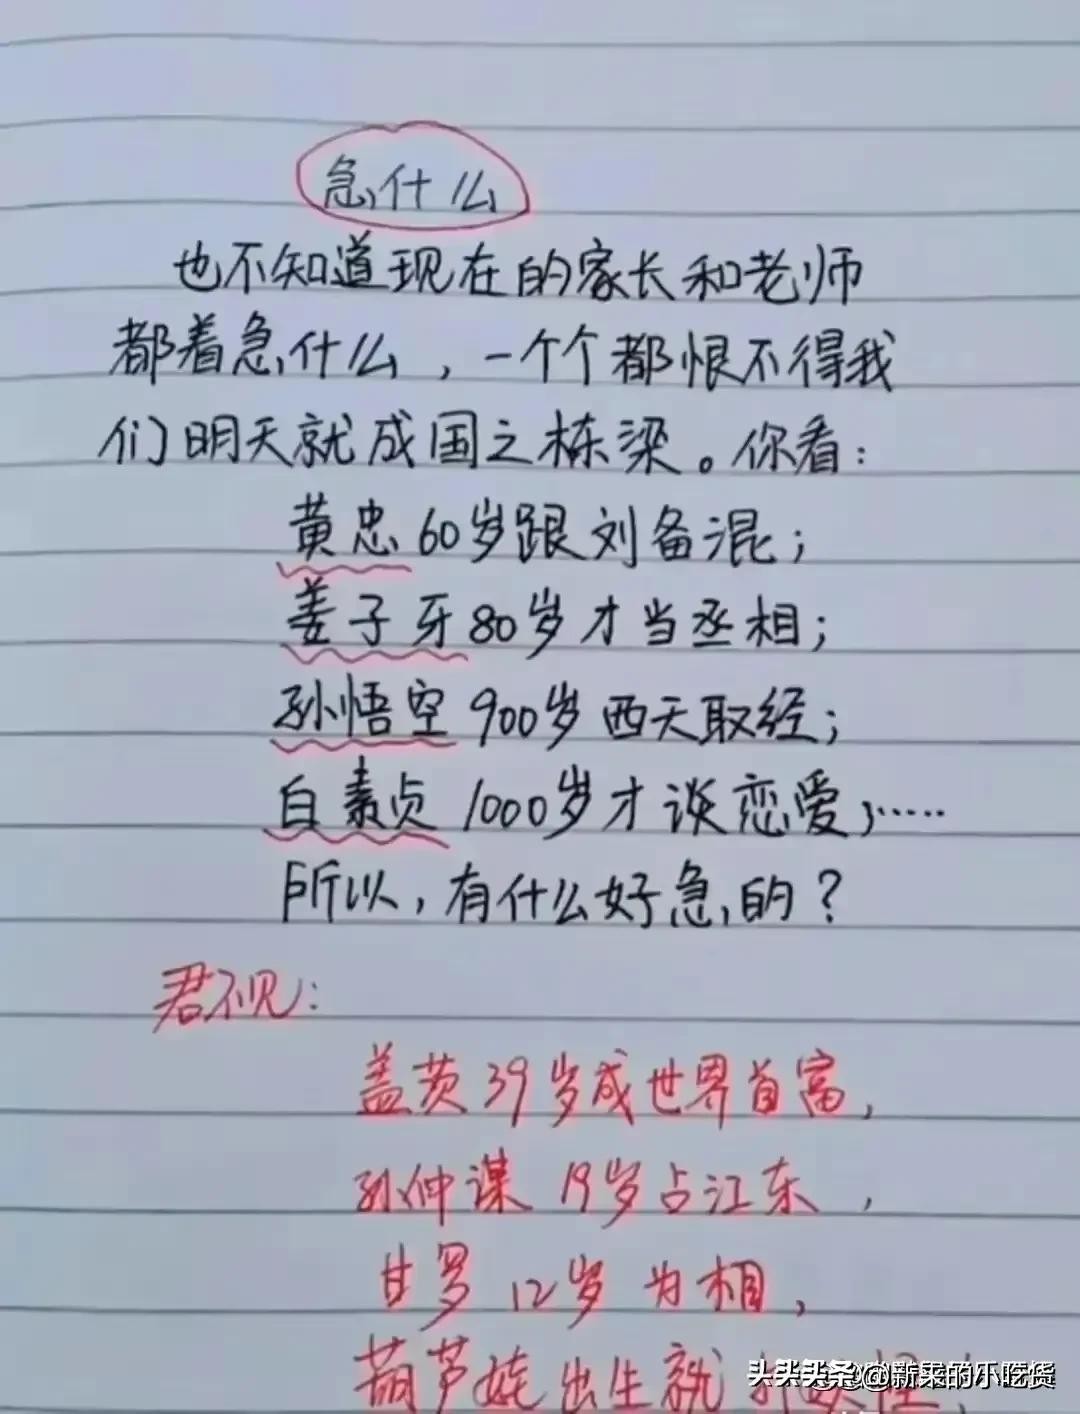 急什么
也不知道现在的家长和老师
都着急什么，一个个都恨不得我
们明天就成国之栋梁。你看：
黄忠60岁跟刘备混；
姜子牙80岁才当丞相；
孙悟空900岁西天取经；
白素贞1000岁才谈恋爱，……
所以，有什么好急的？
君不见：
盖茨39岁成世界首富，
孙仲谋19岁占江东，
甘罗12岁为相，
葫芦娃出生就
头头买条 @新来的小吃货